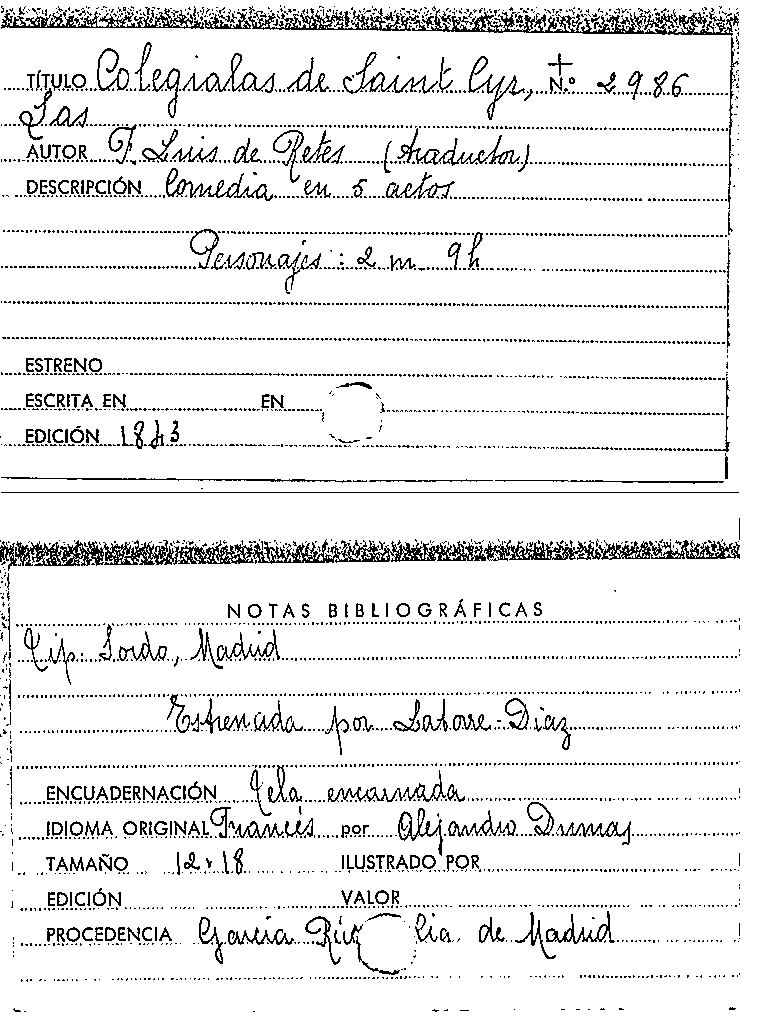 TÍTULO Colegialas de Saint Cyr, N.º 2986
Las
AUTOR F. Luis de Retes (traductor)
DESCRIPCIÓN Comedia en 5 actos
Personajes: 2 m 9 h
ESTRENO
ESCRITA EN EN
EDICIÓN 1843
NOTAS BIBLIOGRÁFICAS
Tip. Sordo, Madrid
Estrenada por Latorre-Diaz
ENCUADERNACIÓN Tela encarnada
IDIOMA ORIGINAL Francés por Alejandro Dumas
TAMAÑO 12 x 18 ILUSTRADO POR
EDICIÓN VALOR
PROCEDENCIA Garcia Rúiz Cia. de Madrid